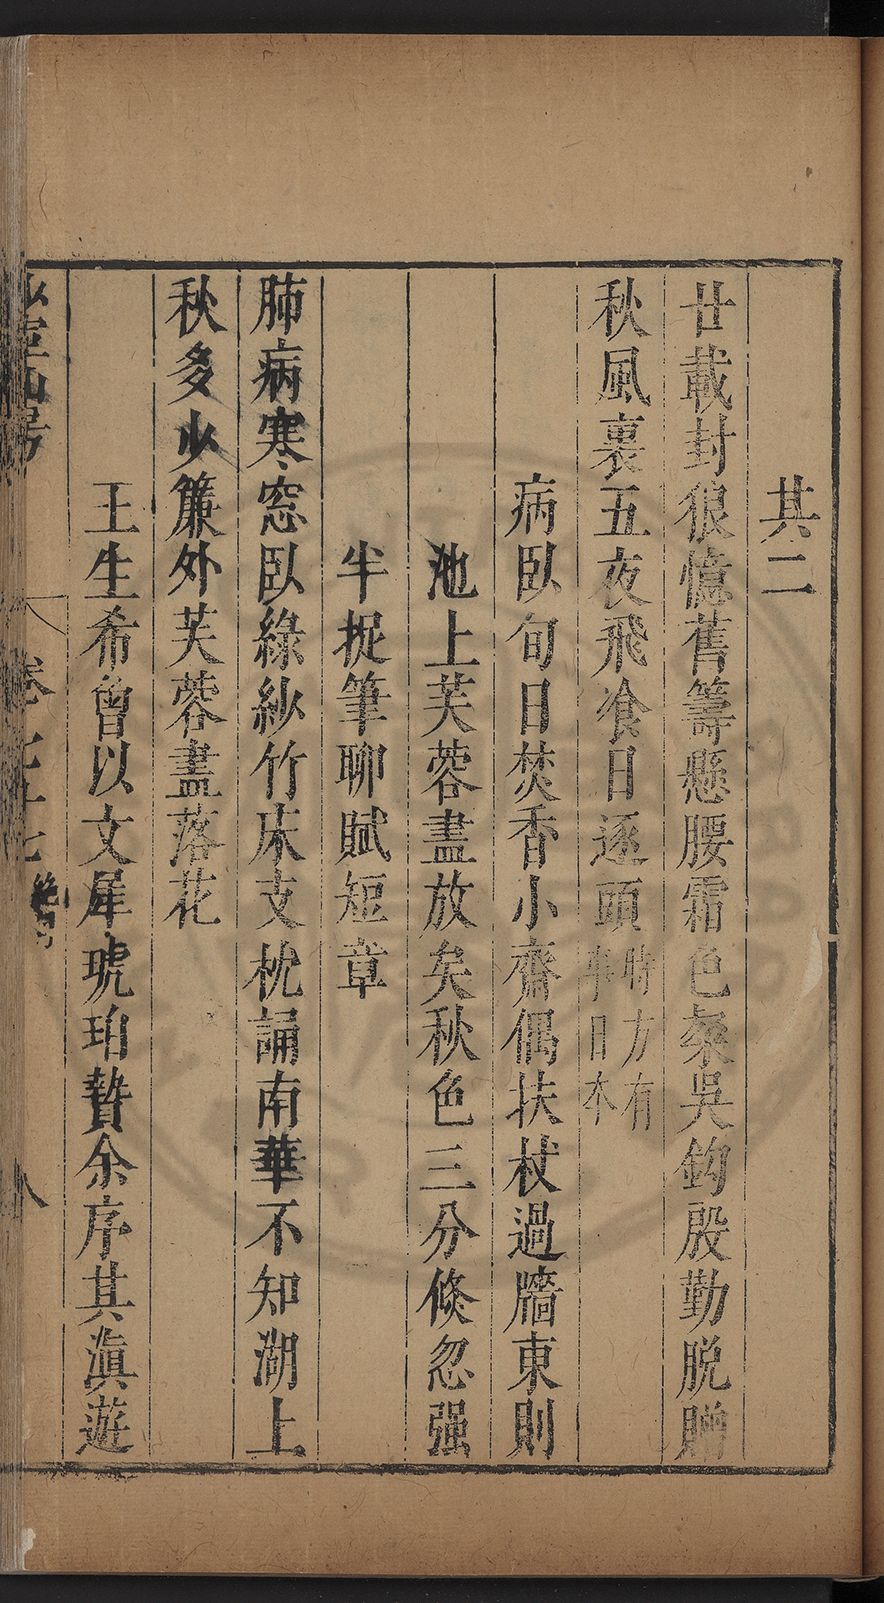 其二
廿載封狼憶舊籌懸腰霜色粲吳鈎殷勤脫贈
秋風裏五夜飛飡日逐頭
時方有
事日本
病臥旬日焚香小齋偶扶杖過牆東則
池上芙蓉盡放矣秋色三分倏忽强
半捉筆聊賦短章
肺病寒窓臥綠紗竹床支枕誦南華不知湖上
秋多少簾外芙蓉盡落花
王生希曾以文犀琥珀贄余序其滇遊
少室山房
卷之七十七
八